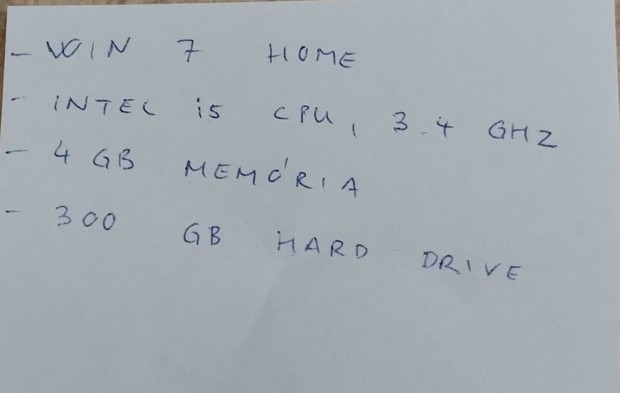 - WIN 7 HOME
- INTEL i5 CPU, 3.4 GHZ
- 4 GB MEMÓRIA
- 300 GB HARD DRIVE